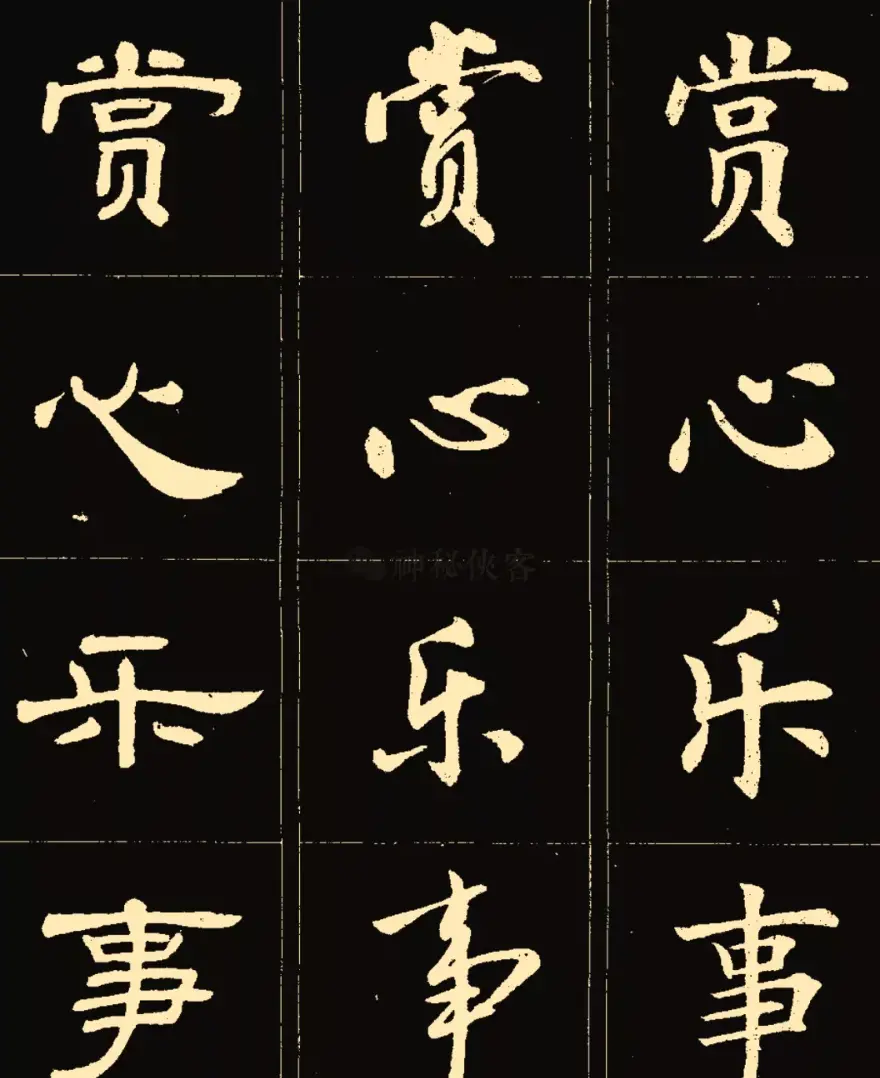 赏 赏 赏
心 心 心
神秘侠客
乐 乐 乐
事 事 事